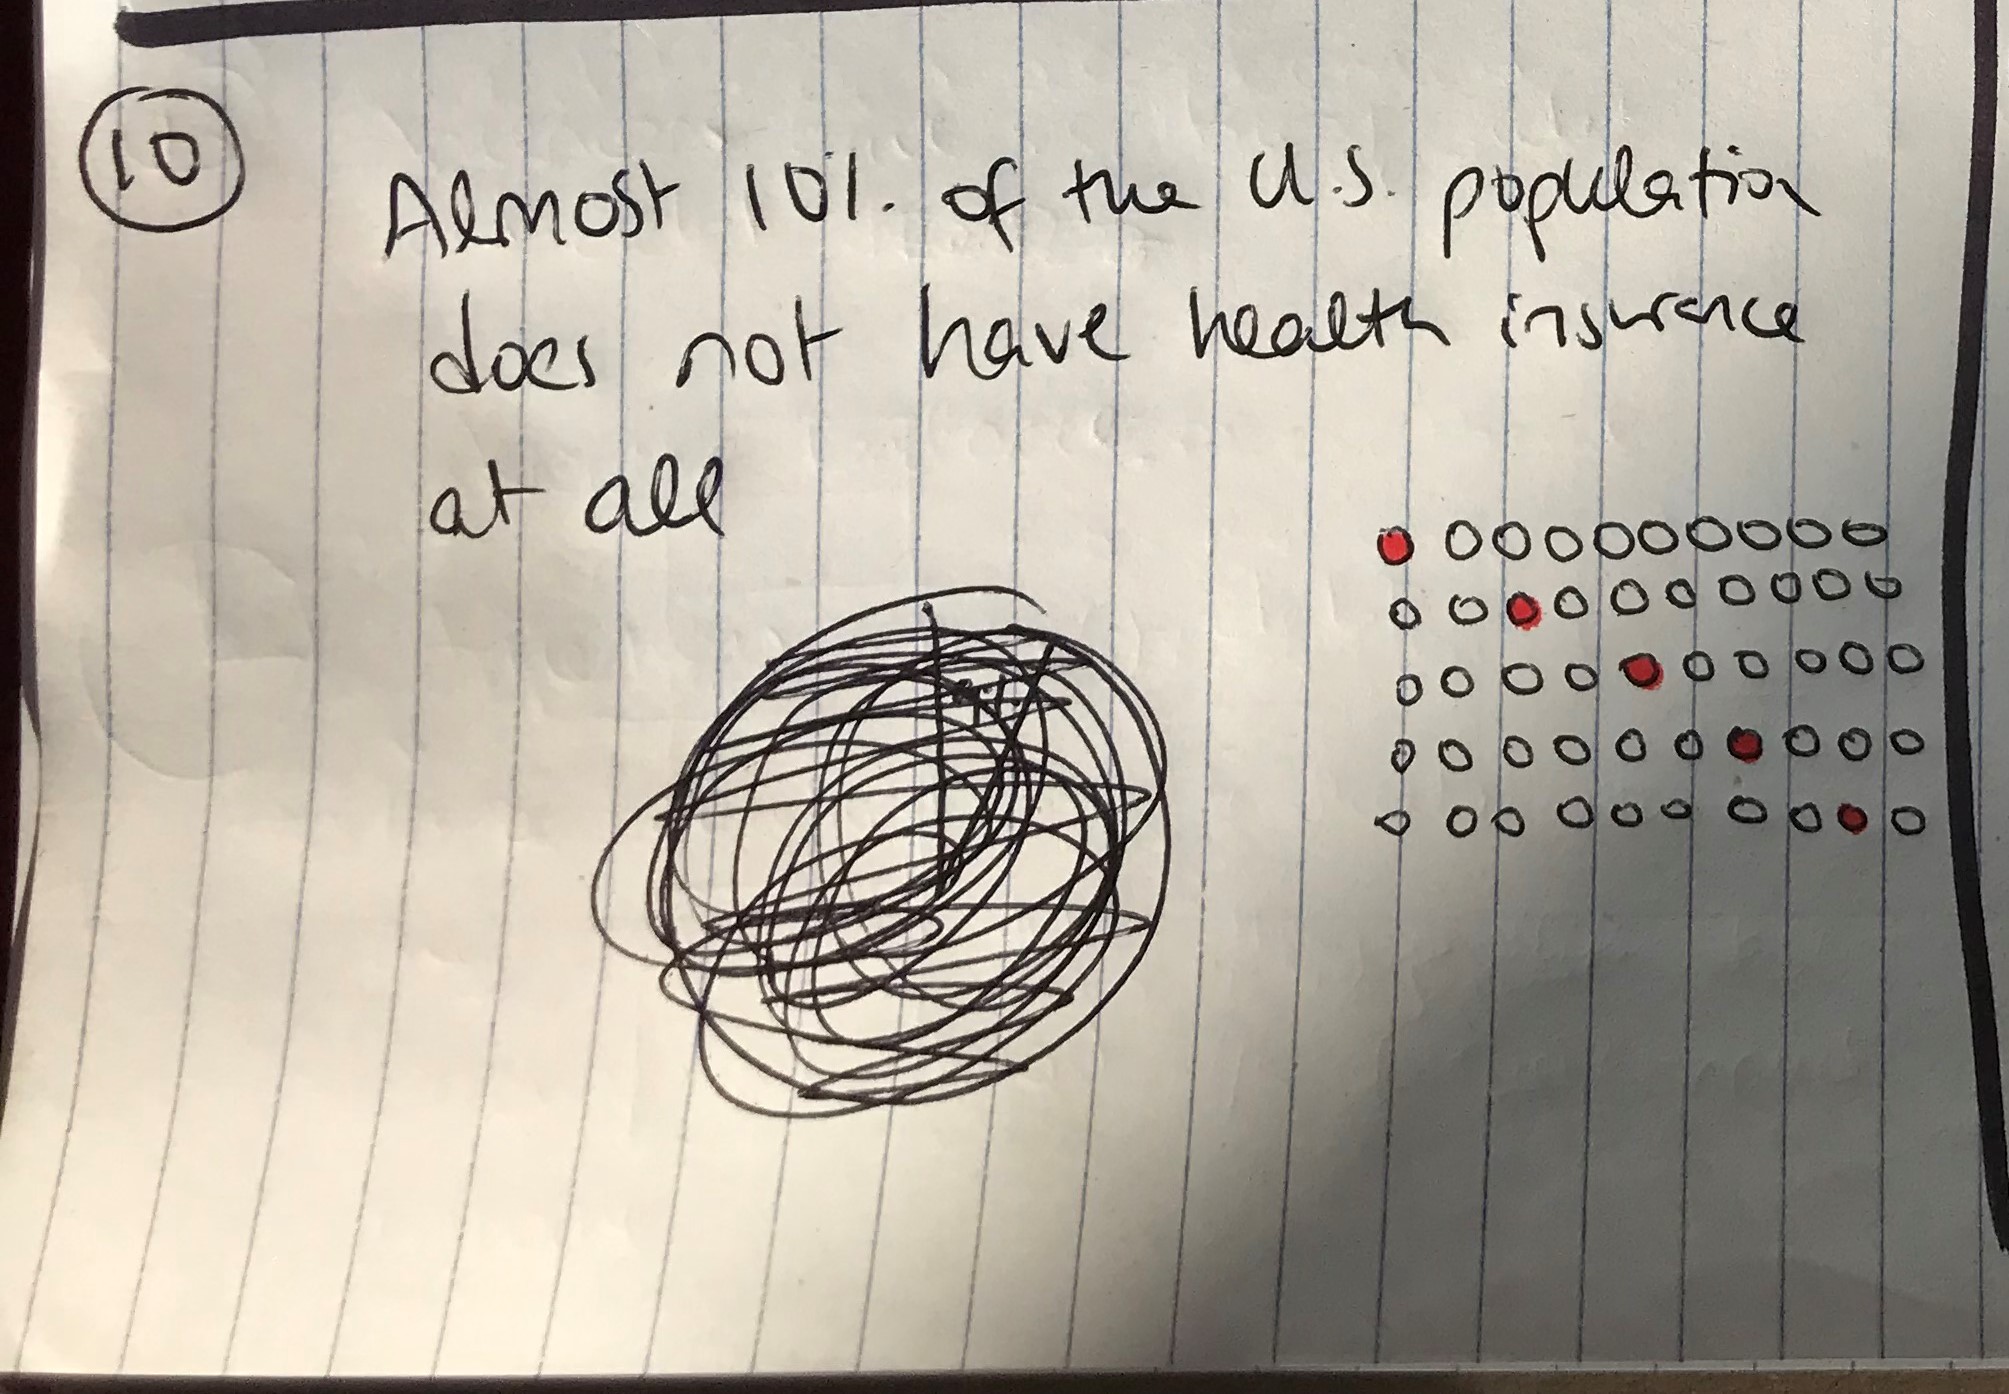 10
Almost 10%. of the U.S. population
does not have health insurance
at all